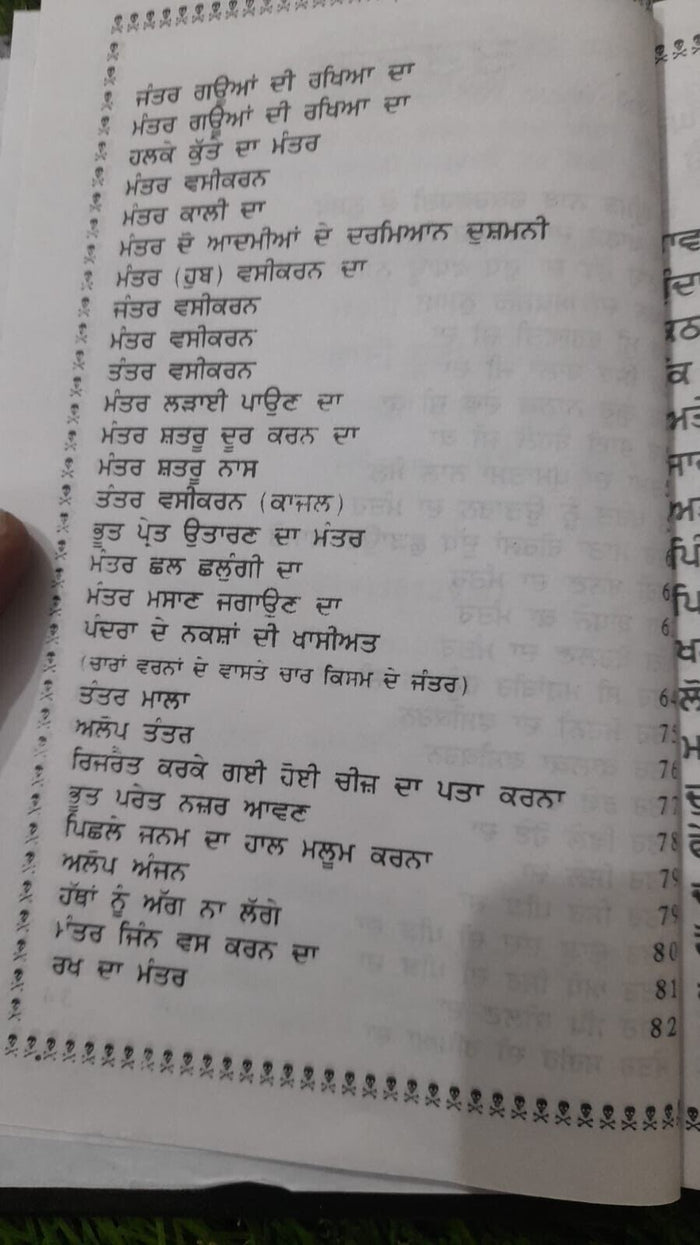 ਜੰਤਰ ਗਊਆਂ ਦੀ ਰਖਿਆ ਦਾ
ਮੰਤਰ ਗਊਆਂ ਦੀ ਰਖਿਆ ਦਾ
ਹਲਕੇ ਕੁੱਤੇ ਦਾ ਮੰਤਰ
ਮੰਤਰ ਵਸੀਕਰਨ
ਮੰਤਰ ਕਾਲੀ ਦਾ
ਮੰਤਰ ਦੋ ਆਦਮੀਆਂ ਦੇ ਦਰਮਿਆਨ ਦੁਸ਼ਮਨੀ
ਮੰਤਰ (ਹੁਬ) ਵਸੀਕਰਨ ਦਾ
ਜੰਤਰ ਵਸੀਕਰਨ
ਮੰਤਰ ਵਸੀਕਰਨ
ਤੰਤਰ ਵਸੀਕਰਨ
ਮੰਤਰ ਲੜਾਈ ਪਾਉਣ ਦਾ
ਮੰਤਰ ਸ਼ਤਰੂ ਦੂਰ ਕਰਨ ਦਾ
ਮੰਤਰ ਸ਼ਤਰੂ ਨਾਸ
ਤੰਤਰ ਵਸੀਕਰਨ (ਕਾਜਲ)
ਭੂਤ ਪ੍ਰੇਤ ਉਤਾਰਣ ਦਾ ਮੰਤਰ
ਮੰਤਰ ਛਲ ਛਲੁੰਗੀ ਦਾ
ਮੰਤਰ ਮਸਾਣ ਜਗਾਉਣ ਦਾ
ਪੰਦਰਾ ਦੇ ਨਕਸ਼ਾਂ ਦੀ ਖਾਸੀਅਤ
(ਚਾਰਾਂ ਵਰਨਾਂ ਦੇ ਵਾਸਤੇ ਚਾਰ ਕਿਸਮ ਦੇ ਜੰਤਰ) 64
ਤੰਤਰ ਮਾਲਾ 75
ਅਲੋਪ ਤੰਤਰ 76
ਰਿਜਰੈਤ ਕਰਕੇ ਗਈ ਹੋਈ ਚੀਜ਼ ਦਾ ਪਤਾ ਕਰਨਾ 77
ਭੂਤ ਪਰੇਤ ਨਜ਼ਰ ਆਵਣ 78
ਪਿਛਲੇ ਜਨਮ ਦਾ ਹਾਲ ਮਲੂਮ ਕਰਨਾ 79
ਅਲੋਪ ਅੰਜਨ 79
ਹੱਥਾਂ ਨੂੰ ਅੱਗ ਨਾ ਲੱਗੇ 80
ਮੰਤਰ ਜਿੰਨ ਵਸ ਕਰਨ ਦਾ 81
ਰਖ ਦਾ ਮੰਤਰ 82